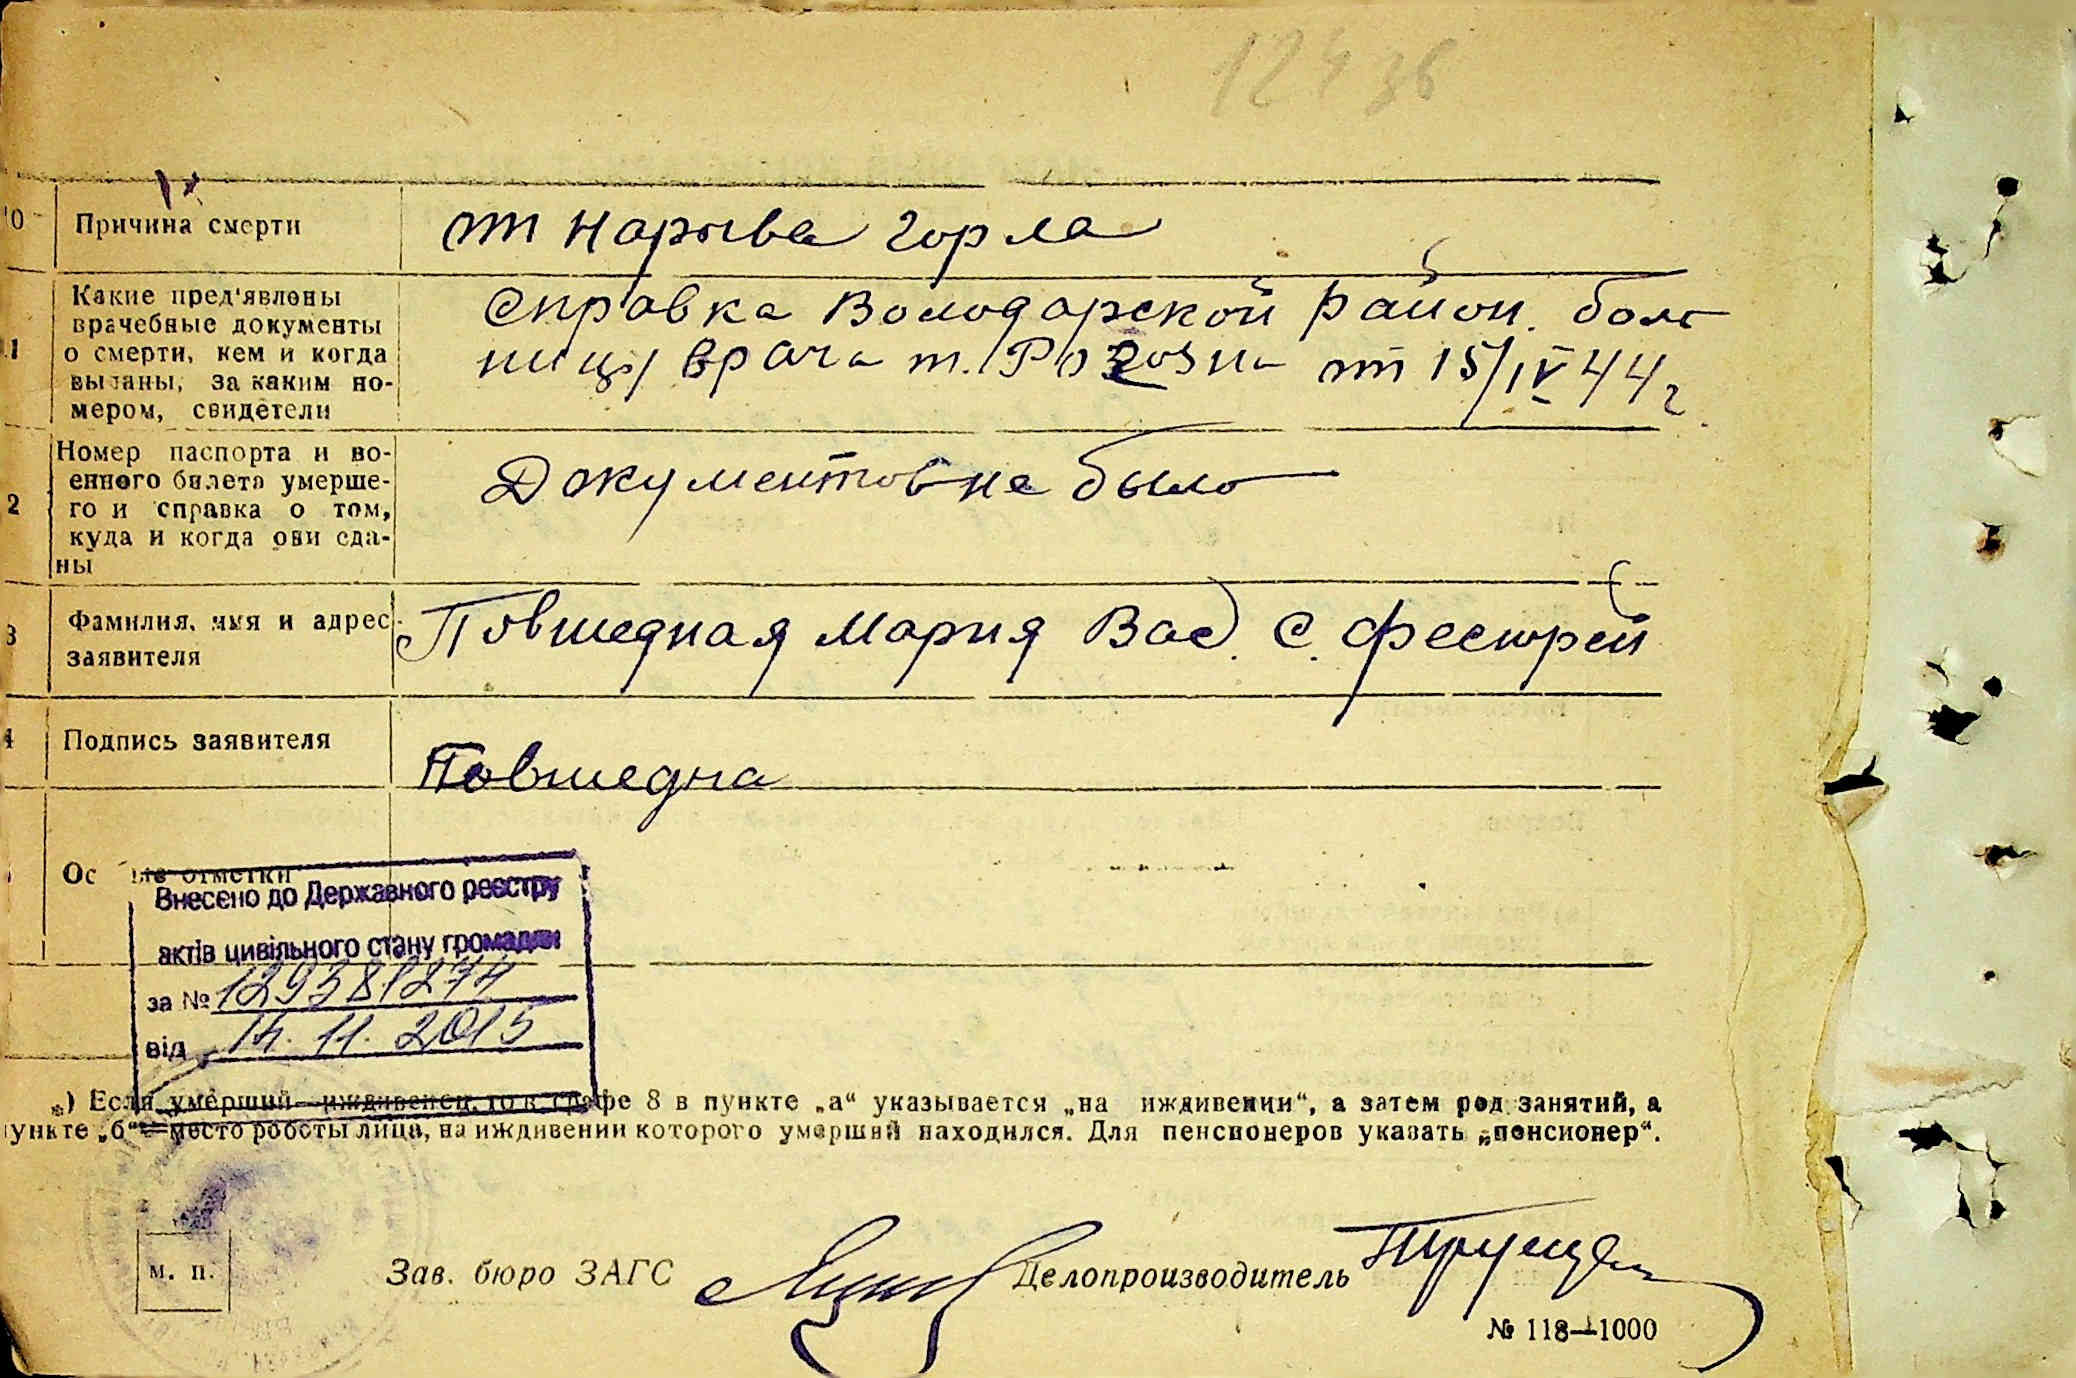 12436
10 Причина смерти
от нарыва горла
Какие пред'явлены
врачебные документы
о смерти, кем и когда
выданы, за каким но-
мером, свидетели
Справка Володарской район. боль
ницы врача т. от 15/IV 44 г
Номер паспорта и во-
енного билета умерше-
го и справка о том,
куда и когда они сда-
ны
Документов не было
Фамилия, имя и адрес
заявителя
Повшедная Мария Вас. с. Фесюрей
Подпись заявителя
Повшедна
отметки
Внесено до Державного реєстру
актів цивільного стану громадян
за №
від 14. 11. 2015
*) Если умерший—иждивенец, то в графе 8 в пункте „а“ указывается „на иждивении“, а затем род занятий, а
пункте „б“—место роботы лица, на иждивении которого умерший находился. Для пенсионеров указать „пенсионер“.
м. п.
Зав. бюро ЗАГС
Делопроизводитель
№ 118—1000